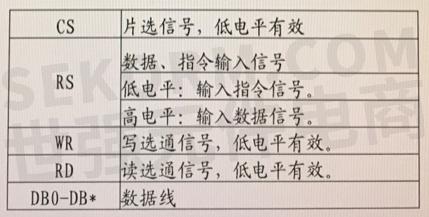 CS 片选信号，低电平有效
数据、指令输入信号
RS 低电平：输入指令信号。
高电平：输入数据信号。
WR 写选通信号，低电平有效。
RD 读选通信号，低电平有效。
DB0-DB* 数据线
SEKORM.COM
世强硬创电商